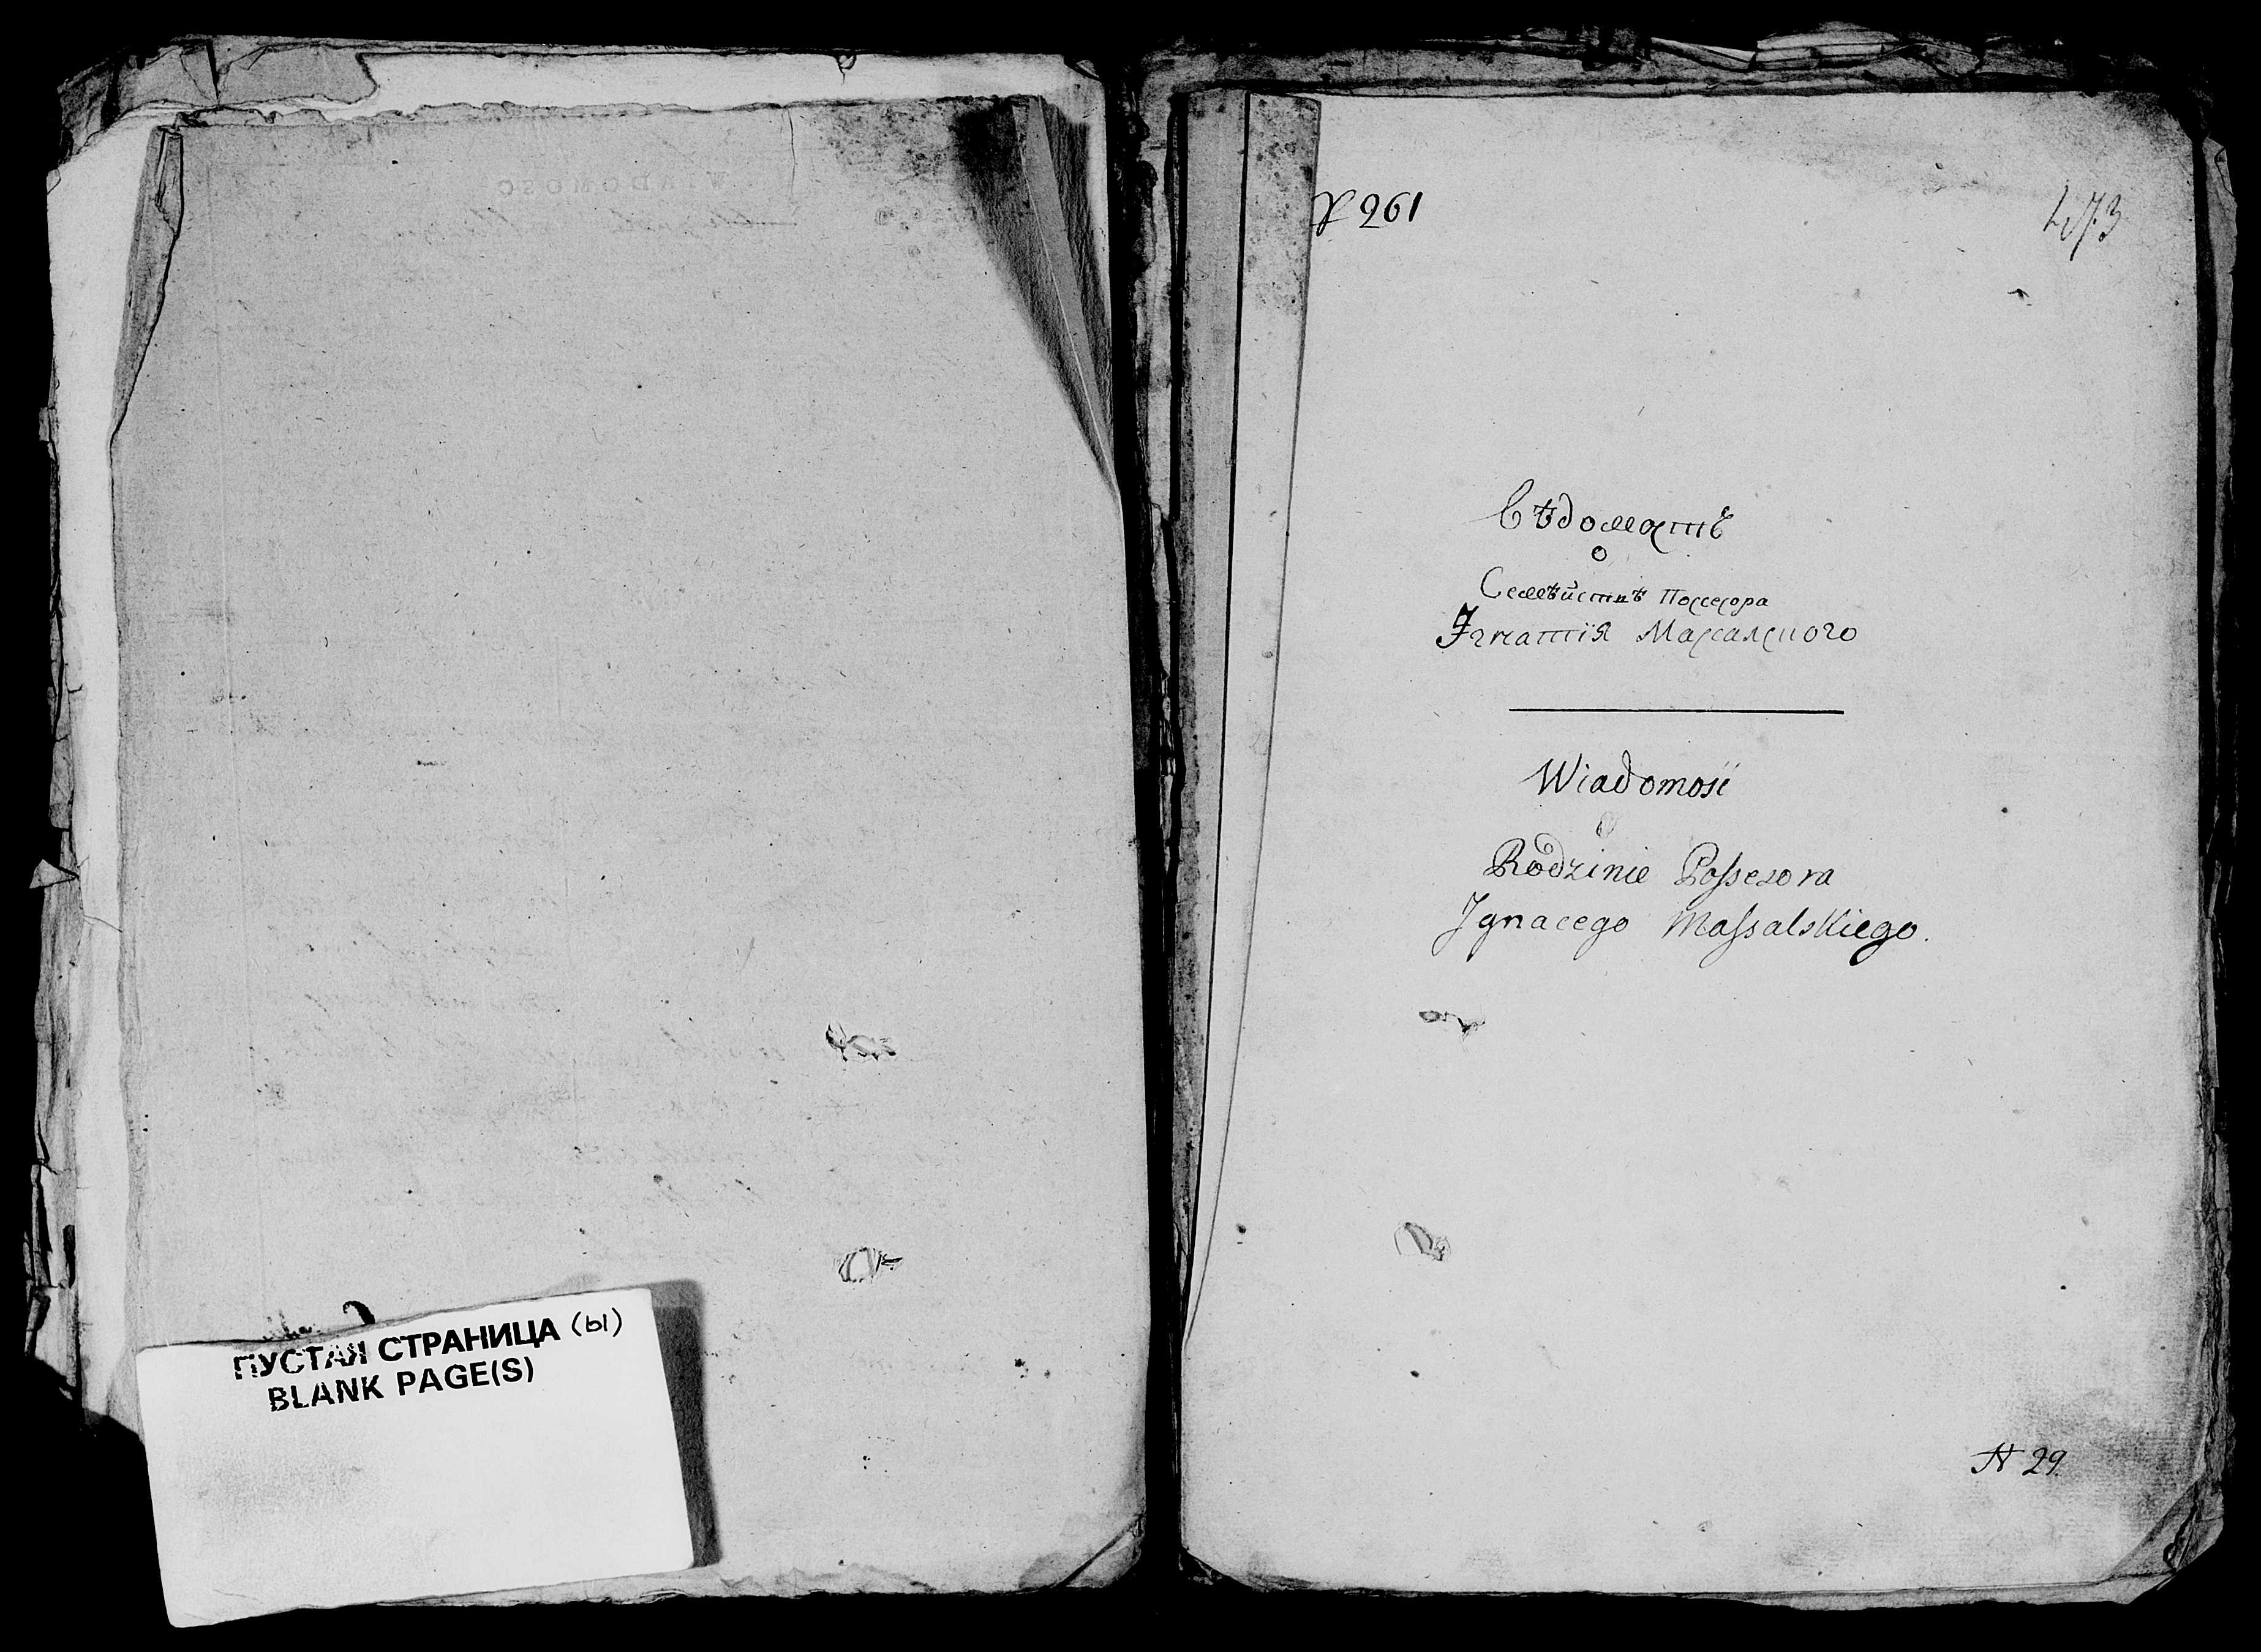 ПУСТАЯ СТРАНИЦА (ы)
BLANK PAGE(S)
№ 261
473
Вѣдомость
о
Семѣйствѣ Поссесора
Игнатія Массалского
Wiadomość
o
Rodzinie Possesora
Jgnacego Massalskiego.
N 29.